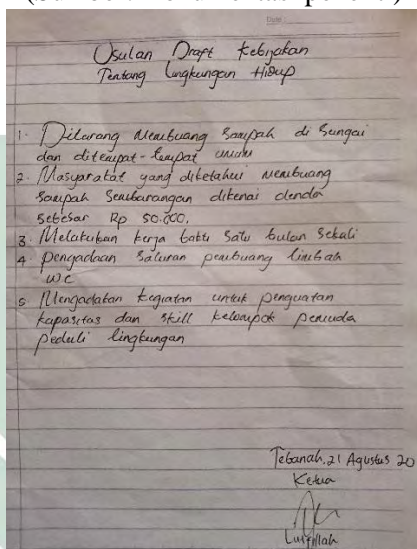 Usulan Draft Kebijakan
Tentang Lingkungan Hidup
1. Dilarang Membuang Sampah di Sungai
dan ditempat-tempat umum
2. Masyarakat yang diketahui membuang
sampah sembarangan dikenai denda
sebesar Rp 50.000.
3. Melakukan kerja bakti satu bulan sekali
4. pengadaan saluran pembuang limbah
WC
5 Mengadakan kegiatan untuk penguatan
kapasitas dan skill kelompok pemuda
peduli lingkungan
Tebanah, 21 Agustus 20
Ketua